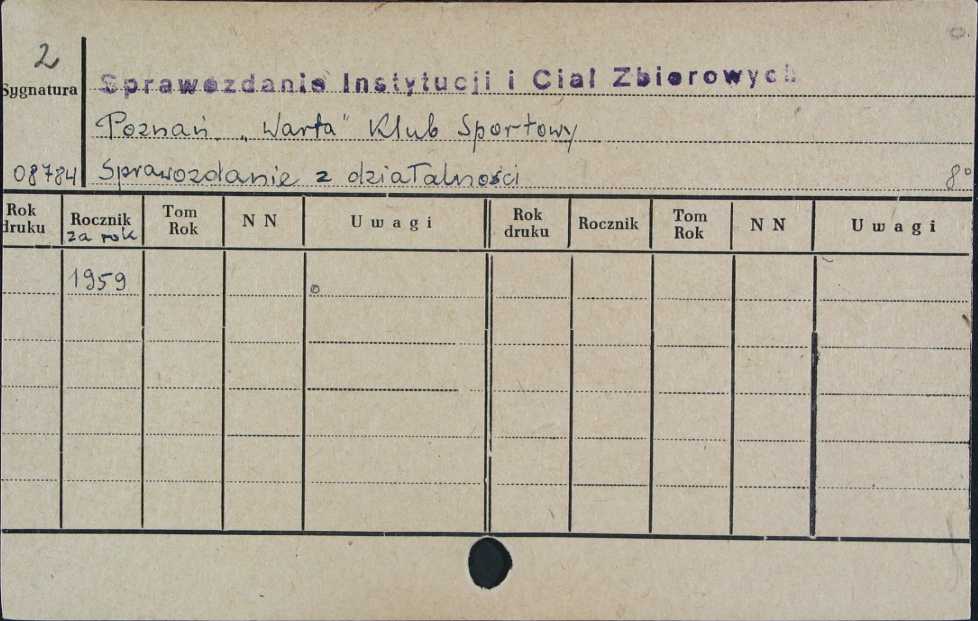 2
Sygnatura
Sprawozdanie Instytucji i Ciał Zbiorowych
Poznań „Warta" Klub Sportowy
08784 Sprawozdanie z działalności 8°
Rok druku Rocznik za rok Tom Rok N N Uwagi Rok druku Rocznik Tom Rok N N Uwagi
1959